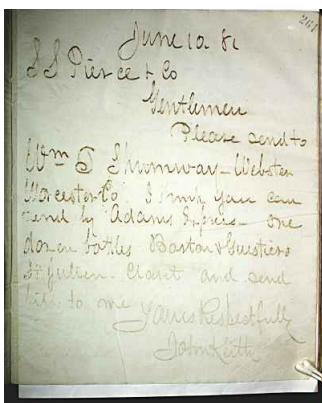 261
June 10 81
S S Pierce & Co
Gentlemen
Please send to
Wm T Shumway - Webster
Worcester Co. I think you can
send by Adams Express - one
dozen bottles Barton & Guestiers
St Julien - Claret and send
bill to me
Yours Respectfully
John Keith